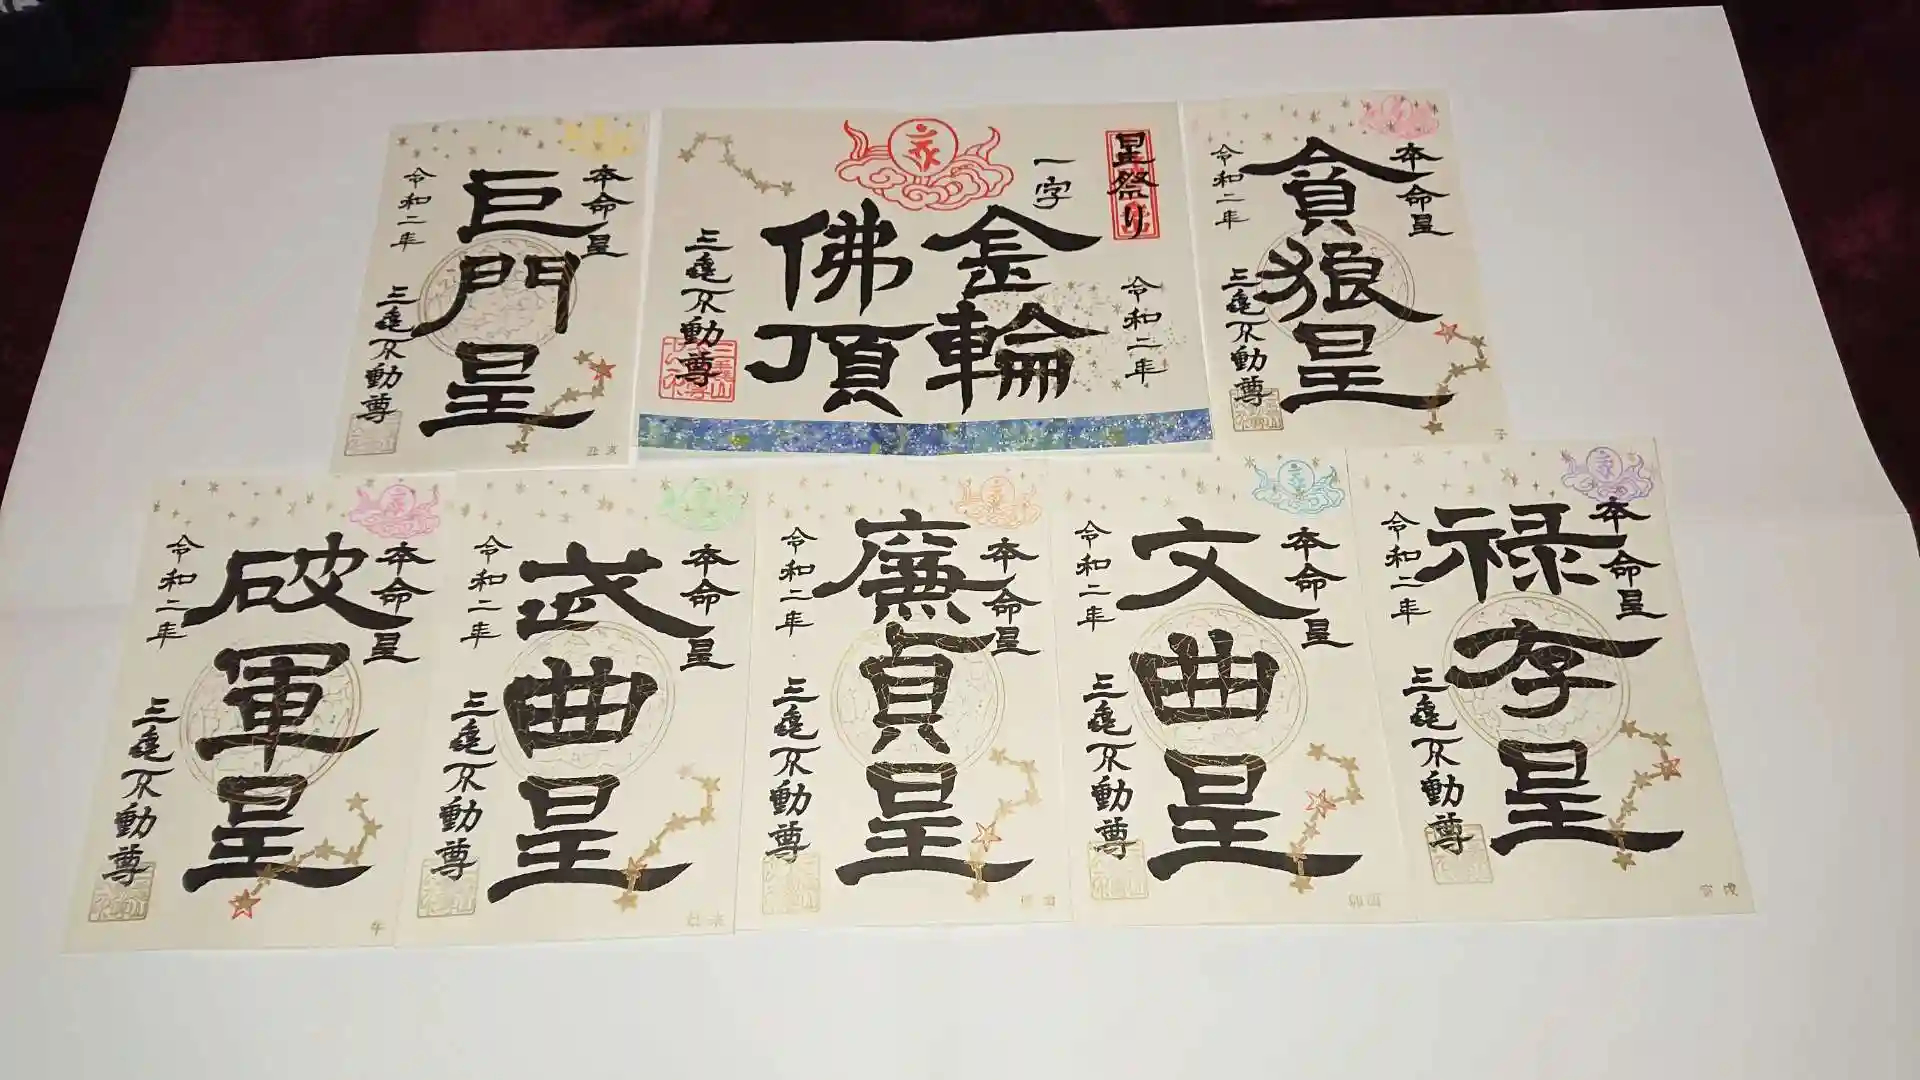 本命星
巨門星
令和二年
三亀不動尊
丑 亥
星祭り
令和二年
一字
金輪
佛頂
三亀不動尊
本命星
貪狼星
令和二年
三亀不動尊
子
本命星
破軍星
令和二年
三亀不動尊
午
本命星
武曲星
令和二年
三亀不動尊
本命星
廉貞星
令和二年
三亀不動尊
本命星
文曲星
令和二年
三亀不動尊
本命星
禄存星
令和二年
三亀不動尊
寅 戌